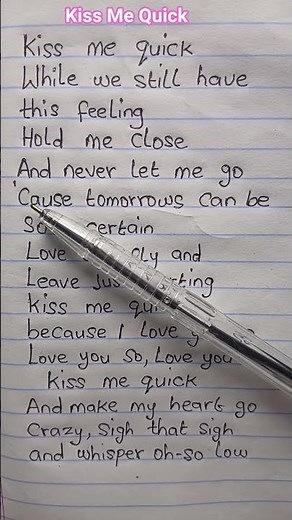 Kiss Me Quick
Kiss me quick
While we still have
this feeling
Hold me close
And never let me go
'Cause tomorrows can be
So ertain
Love ly and
Leave Jus ting
Kiss me qui
because I love y
Love you so, Love you
Kiss me quick
And make my heart go
Crazy, Sigh that sigh
and whisper oh-so low